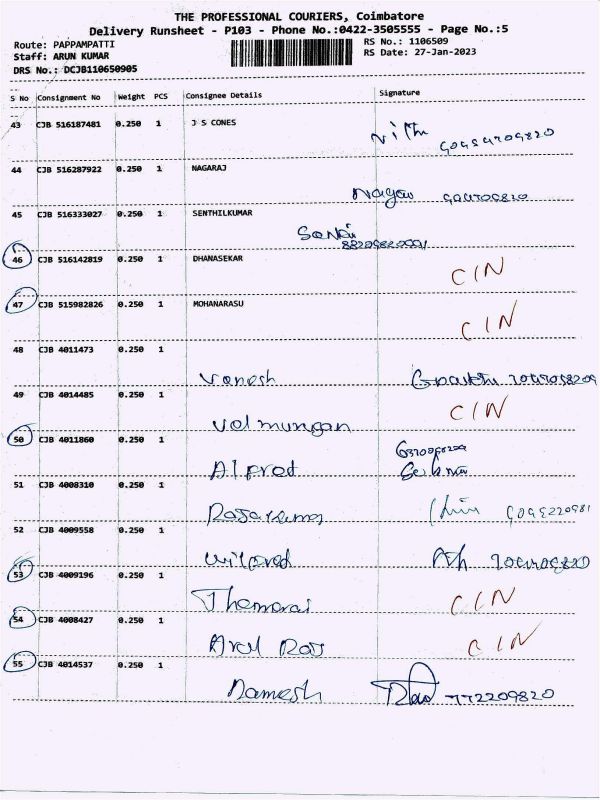 THE PROFESSIONAL COURIERS, Coimbatore
Delivery Runsheet - P103 - Phone No.:0422-3505555 - Page No.:5
Route: PAPPAMPATTI
RS No.: 1106509
Staff: ARUN KUMAR
RS Date: 27-Jan-2023
DRS No.: DCJB110650905
S No Consignment No Weight PCS Consignee Details Signature
43 CJB 516187481 0.250 1 J S CONES
44 CJB 516287922 0.250 1 NAGARAJ
45 CJB 516333027 0.250 1 SENTHILKUMAR
46 CJB 516142819 0.250 1 DHANASEKAR
C/N
47 CJB 515982826 0.250 1 MOHANARASU
C/N
48 CJB 4011473 0.250 1
Vanesh
49 CJB 4014485 0.250 1
C/N
Valmungan
50 CJB 4011860 0.250 1
Alfred
51 CJB 4008310 0.250 1
52 CJB 4009558 0.250 1
Wilfred
53 CJB 4009196 0.250 1
C/N
Thamarai
54 CJB 4008427 0.250 1
C/N
Arul Raj
55 CJB 4014537 0.250 1
Ramesh 772209820